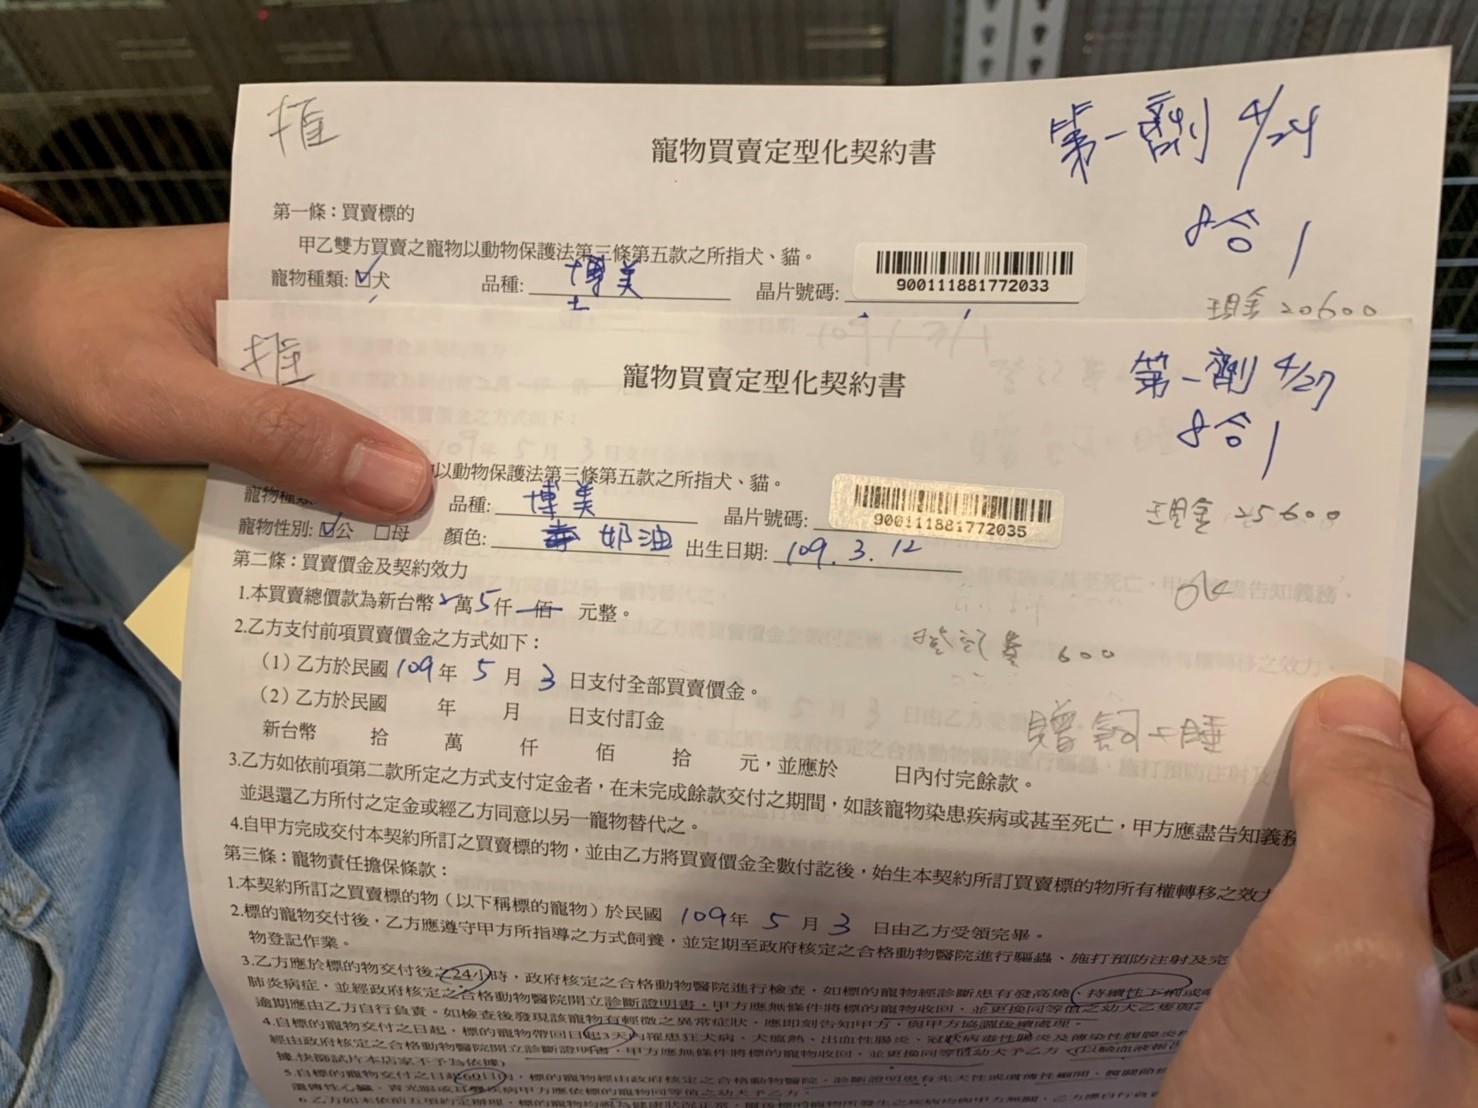 推
寵物買賣定型化契約書
第一劑 4/24
8合1
第一條：買賣標的
甲乙雙方買賣之寵物以動物保護法第三條第五款之所指犬、貓。
寵物種類: ☑犬 品種: 博美 晶片號碼: 900111881772033
現金 20600
推
寵物買賣定型化契約書
第一劑 4/27
8合1
以動物保護法第三條第五款之所指犬、貓。
寵物種類 品種: 博美 晶片號碼: 900111881772035
現金 25600
寵物性別: ☑公 □母 顏色: 奶油 出生日期: 109.3.12
第二條：買賣價金及契約效力
1.本買賣總價款為新台幣 2萬5仟 佰 元整。
2.乙方支付前項買賣價金之方式如下：
登記 600
(1)乙方於民國 109 年 5 月 3 日支付全部買賣價金。
(2)乙方於民國 年 月 日支付訂金
贈飼
新台幣 拾 萬 仟 佰 拾 元，並應於 日內付完餘款。
3.乙方如依前項第二款所定之方式支付定金者，在未完成餘款交付之期間，如該寵物染患疾病或甚至死亡，甲方應盡告知義務
並退還乙方所付之定金或經乙方同意以另一寵物替代之。
4.自甲方完成交付本契約所訂之買賣標的物，並由乙方將買賣價金全數付訖後，始生本契約所訂買賣標的物所有權轉移之效力
第三條：寵物責任擔保條款：
1.本契約所訂之買賣標的物（以下稱標的寵物）於民國 109 年 5 月 3 日由乙方受領完畢。
2.標的寵物交付後，乙方應遵守甲方所指導之方式飼養，並定期至政府核定之合格動物醫院進行驅蟲、施打預防注射及完
物登記作業。
3.乙方應於標的物交付後之24小時，政府核定之合格動物醫院進行檢查，如標的寵物經診斷患有發高燒，持續性下痢或
肺炎病症，並經政府核定之合格動物醫院開立診斷證明書，甲方應無條件將標的寵物收回，並更換同等值之幼犬乙隻與
逾期應由乙方自行負責，如檢查後發現該寵物有輕微之異常症狀，應即刻告知甲方，與甲方協調後續處理。
4.自標的寵物交付之日起，標的寵物帶回日起3天內罹患狂犬病、犬瘟熱、出血性腸炎、冠狀病毒性腸炎及傳染性
經由政府核定之合格動物醫院開立診斷證明書，甲方應無條件將標的寵物收回，並更換同等值幼犬予乙方
據,快篩試片本店家不予為依據)
5.自標的寵物交付之日起60日內，標的寵物經由政府核定之合格動物醫院，診斷證明患有先天性或遺傳性